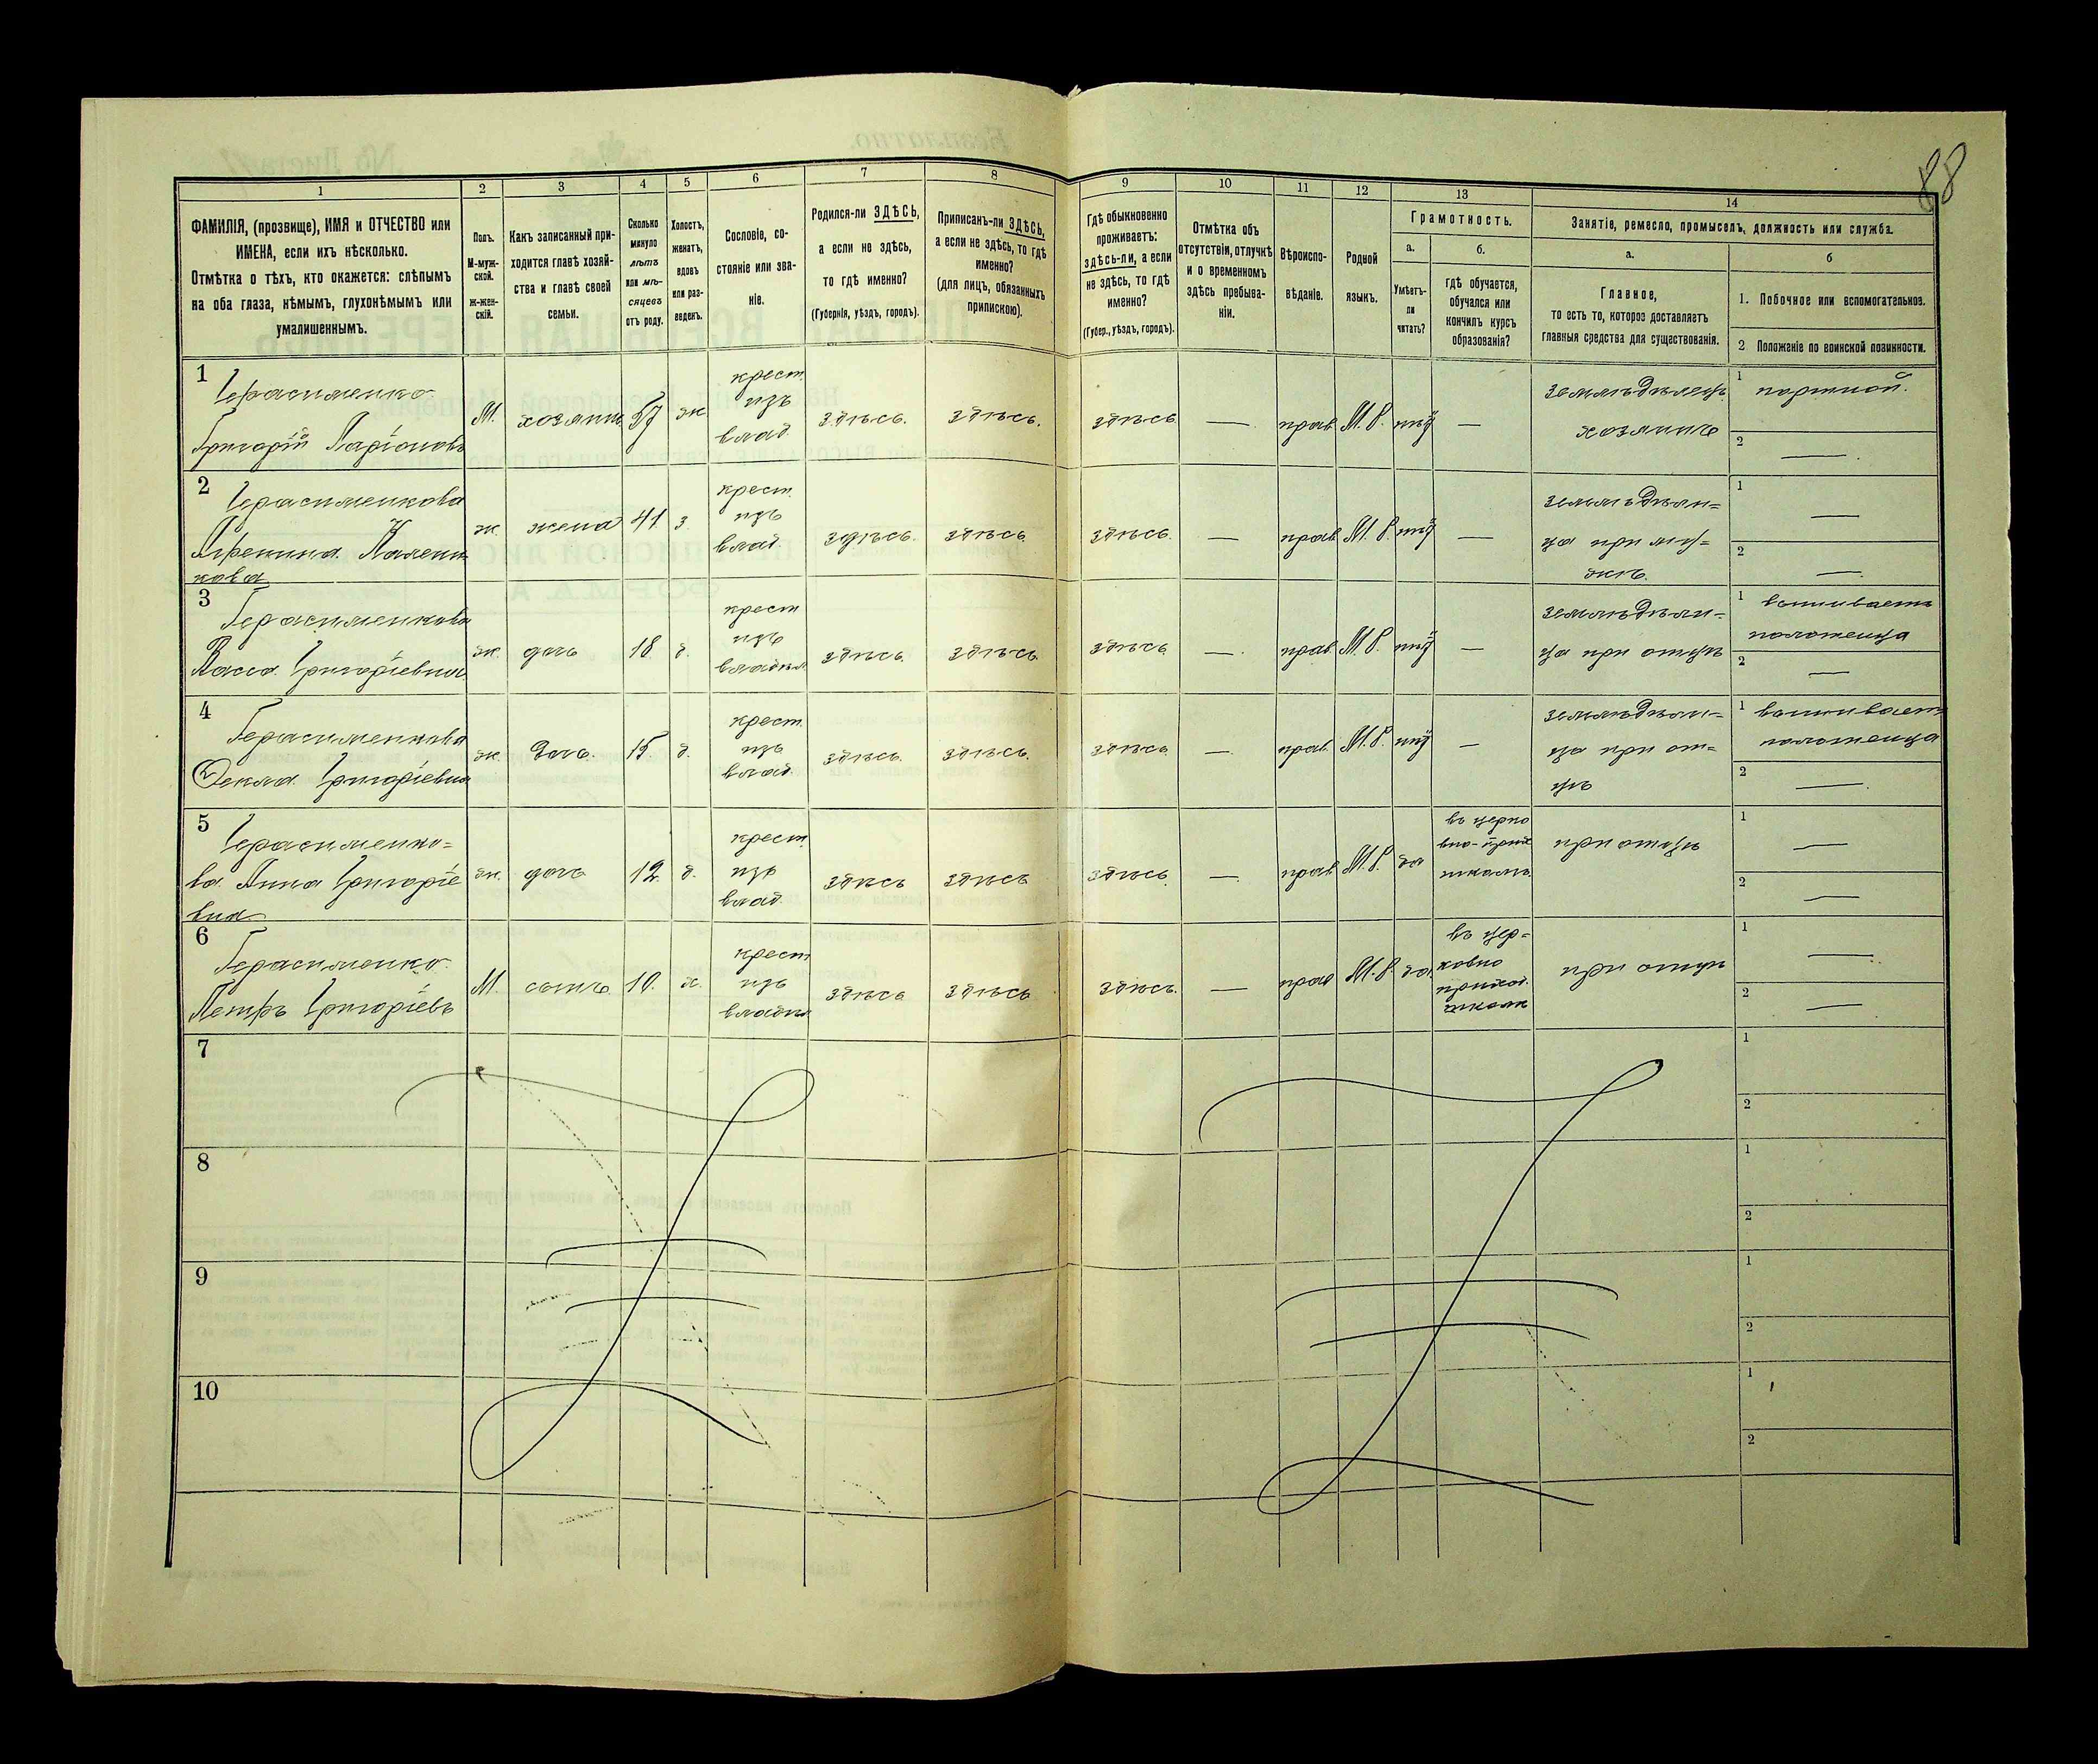 88
1 2 3 4 5 6 7 8 9 10 11 12 13 14
ФАМИЛІЯ, (прозвище), ИМЯ и ОТЧЕСТВО или
ИМЕНА, если ихъ нѣсколько.
Отмѣтка о тѣхъ, кто окажется: слѣпымъ
на оба глаза, нѣмымъ, глухонѣмымъ или
умалишеннымъ.
Полъ.
М-муж-
ской.
Ж-жен-
скій.
Какъ записанный при-
ходится главѣ хозяй-
ства и главѣ своей
семьи.
Сколько
минуло
лѣтъ
или мѣ-
сяцевъ
отъ роду.
Холостъ,
женатъ,
вдовъ
или раз-
веденъ.
Сословіе, со-
стояніе или зва-
ніе.
Родился-ли ЗДѢСЬ,
а если не здѣсь,
то гдѣ именно?
(Губернія, уѣздъ, городъ).
Приписанъ-ли ЗДѢСЬ,
а если не здѣсь, то гдѣ
именно?
(для лицъ, обязанныхъ
припискою).
Гдѣ обыкновенно
проживаетъ:
здѣсь-ли, а если
не здѣсь, то гдѣ
именно?
(Губер., уѣздъ, городъ).
Отмѣтка объ
отсутствіи, отлучкѣ
и о временномъ
здѣсь пребыва-
ніи.
Вѣроиспо-
вѣданіе.
Родной
языкъ.
Грамотность.
а.
Умѣетъ-
ли
читать?
б.
гдѣ обучается,
обучался или
кончилъ курсъ
образованія?
Занятіе, ремесло, промыселъ, должность или служба.
а.
Главное,
то есть то, которое доставляетъ
главныя средства для существованія.
б
1. Побочное или вспомогательное.
2 Положеніе по воинской повинности.
1
Герасименко
Григорій Ларіоновъ
М.
хозяинъ
57
ж
крест.
изъ
влад.
здѣсь.
здѣсь.
здѣсь
—
прав.
М. Р.
нѣт
—
земледѣлецъ
хозяинъ
1 портной.
2 —
2
Герасименкова
жена
41.
з.
крест.
изъ
влад.
здѣсь.
здѣсь
здѣсь.
—
прав.
М. Р.
нѣт
—
земледѣли-
ца при му-
жѣ.
1 —
2 —
3
Герасименкова
Васса Григоріевна
ж.
дочь
18
д.
крест
изъ
владѣл
здѣсь.
здѣсь.
здѣсь
—
прав.
М. Р.
нѣт
—
земледѣли-
ца при отцѣ
1 вышиваетъ
полотенца
2 —
4
Герасименкова
Ѳекла Григоріевна
ж.
дочь.
15.
д.
крест.
изъ
влад.
здѣсь.
здѣсь.
здѣсь
—
прав.
М. Р.
нѣт
—
земледѣли-
ца при от-
цѣ
1 вышиваетъ
полотенца
2 —
5
Герасименко-
ва Анна Григоріе
вна
ж.
дочь
12.
д.
крест.
изъ
влад.
здѣсь
здѣсь
здѣсь.
—
прав.
М. Р.
да
въ церко
вно-прих
школѣ.
при отцѣ
1 —
2 —
6
Герасименко
Петръ Григоріевъ
М.
сынъ.
10.
х.
крест
изъ
владѣл
здѣсь
здѣсь
здѣсь.
—
прав
М. Р.
да
въ цер-
ковно
приход.
школѣ
при отцѣ
1 —
2 —
7
1
2
8
1
2
9
1
2
10
1
2